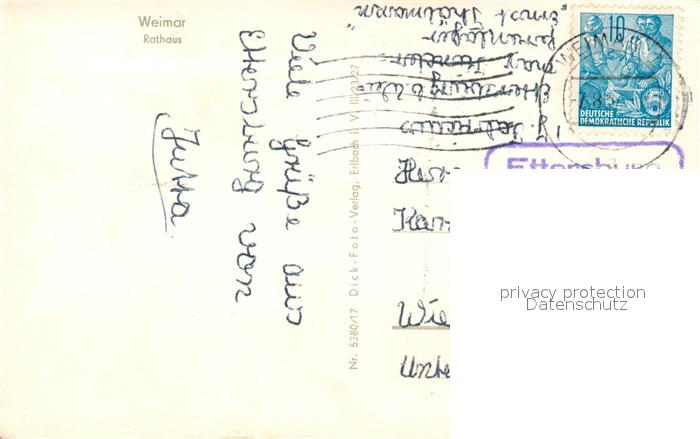 Weimar
Rathaus
Viele Grüße aus
Ettersburg von
Jutta
Nr. 5380/17 Dick-Foto-Verlag, Erlbach i. V. III/23/27
Ettersburg b. Wei
Ferienlager
"Ernst Thälmann"
10
WEIMAR
DEUTSCHE
DEMOKRATISCHE REPUBLIK
Ettersburg
Wie
Unte
privacy protection
Datenschutz